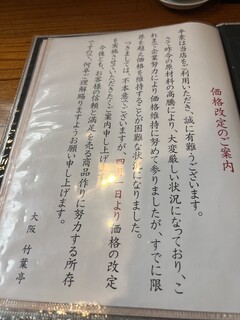 価格改定のご案内
平素は当店をご利用いただき、誠に有難うございます。
さて昨今の原材料の高騰により、大変厳しい状況になっており、こ
れまで企業努力により価格維持に努めて参りましたが、すでに限
界を超え価格を維持することが困難な状況になりました。
つきましては、不本意でございますが、四月一日より価格の改定
を実施させていただきたくご案内申し上げ
今後とも、お客様の信頼と満足を売る商品作りに努力する所存
ですので、何卒ご理解賜りますようお願い申し上げます。
大阪 竹葉亭